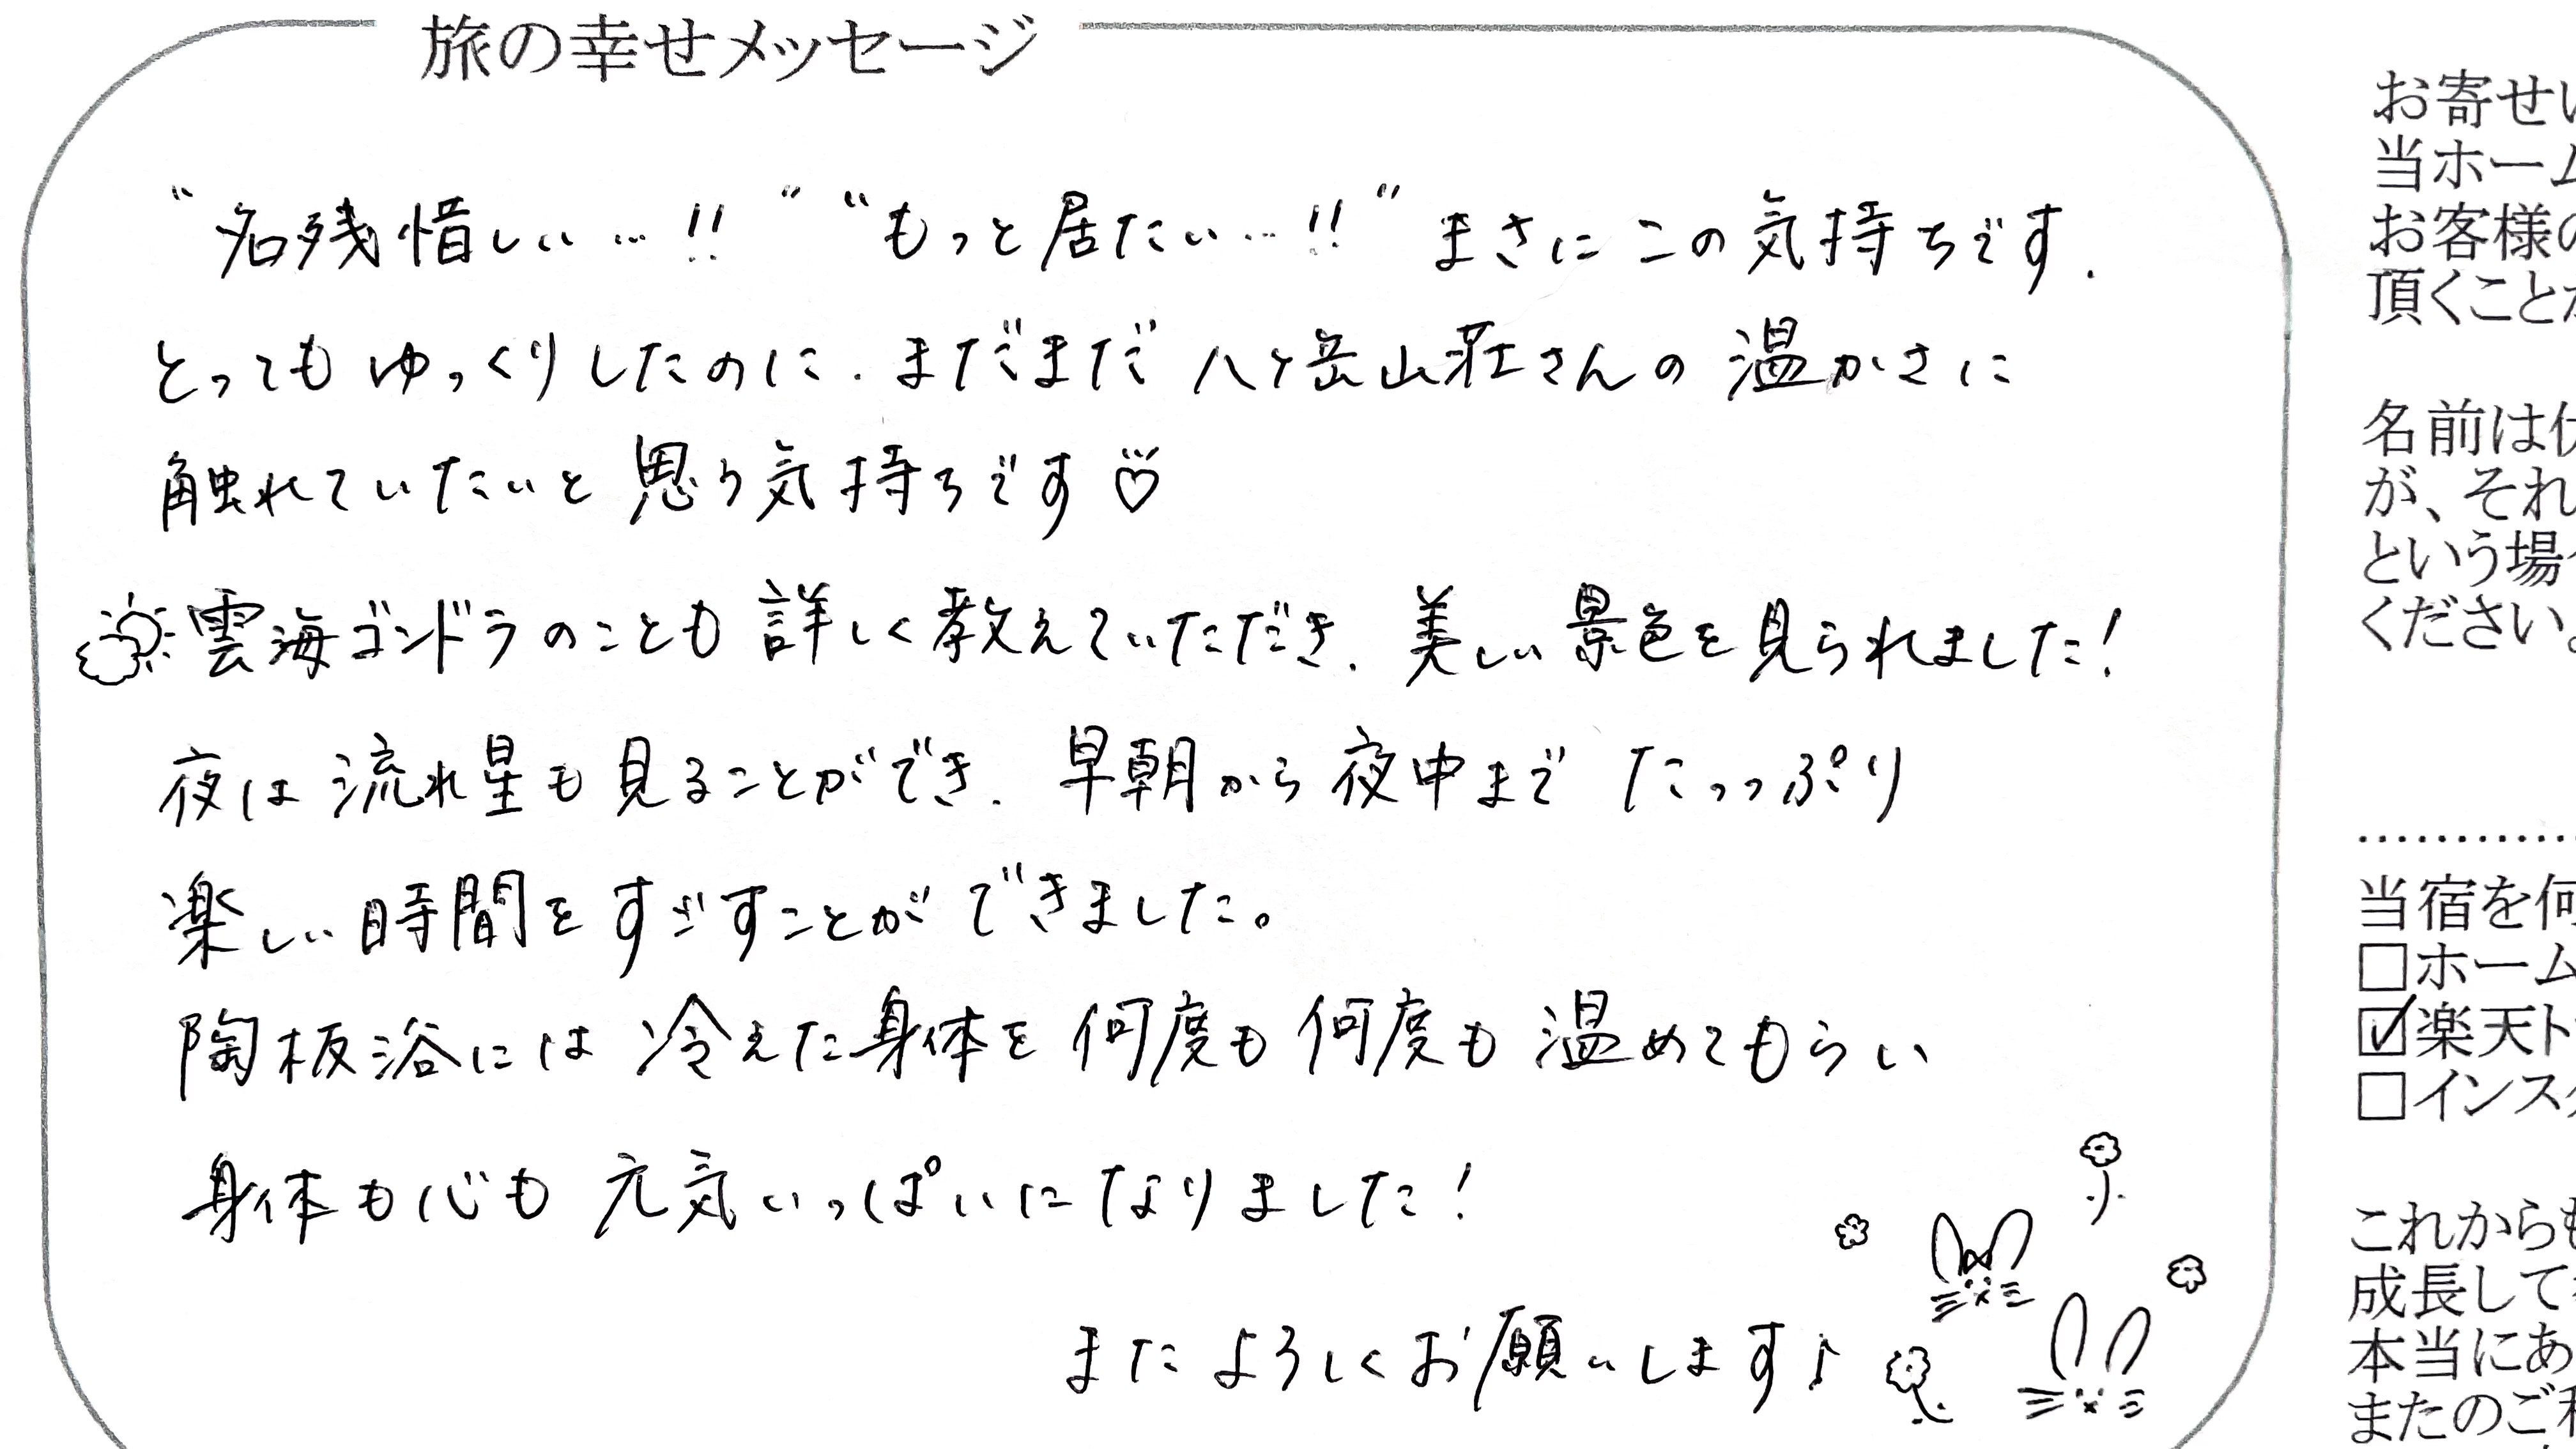 旅の幸せメッセージ
“名残惜しい…!!” “もっと居たい…!!” まさにこの気持ちです.
とってもゆっくりしたのに. まだまだ 八ヶ岳山荘さんの 温かさに
触れていたいと思う気持ちです♡
雲海ゴンドラのことも 詳しく教えていただき. 美しい景色を見られました!
夜は流れ星も見ることができ. 早朝から夜中まで たっっぷり
楽しい時間をすごすことができました。
陶板浴には 冷えた身体を何度も何度も温めてもらい
身体も心も 元気いっぱいになりました!
またよろしくお願いします♪
お寄せい
当ホーム
お客様の
頂くことが
名前は伏
が、それ
という場合
ください。
…………
当宿を何
□ホーム
☑楽天ト
□インスタ
これからも
成長して
本当にあ
またのご利